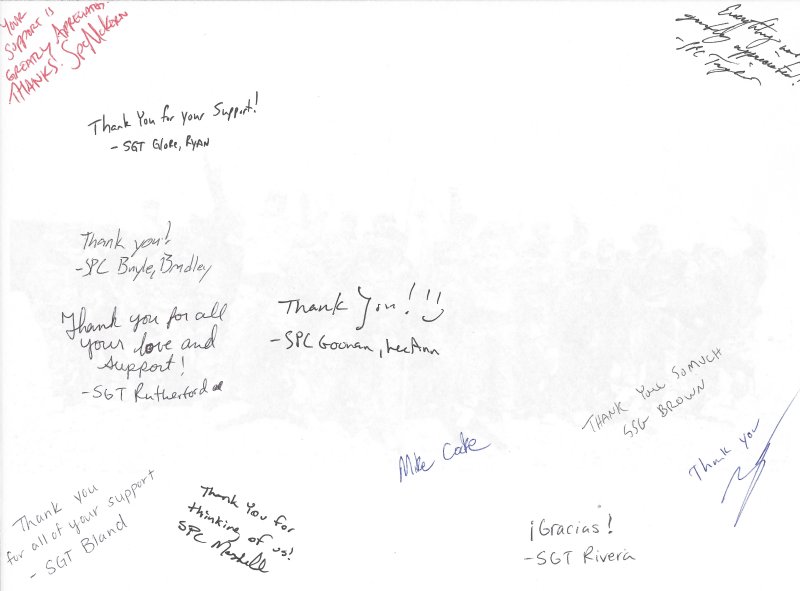 YOUR
SUPPORT IS
GREATLY APPRECIATED.
THANKS. Spc McKern
Everything is
greatly appreciated!
- SPC Taylor
Thank You for your Support!
- SGT Glore, RYAN
Thank you!
- SPC Bradley
Thank you for all
your love and
support!
- SGT Rutherford
Thank You!
- SPC Goonan, LeeAnn
THANK YOU SO MUCH
SSG BROWN
Thank you
Mike Cake
Thank you
for all of your support
- SGT Bland
Thank You for
thinking of us!
SPC
¡Gracias!
- SGT Rivera